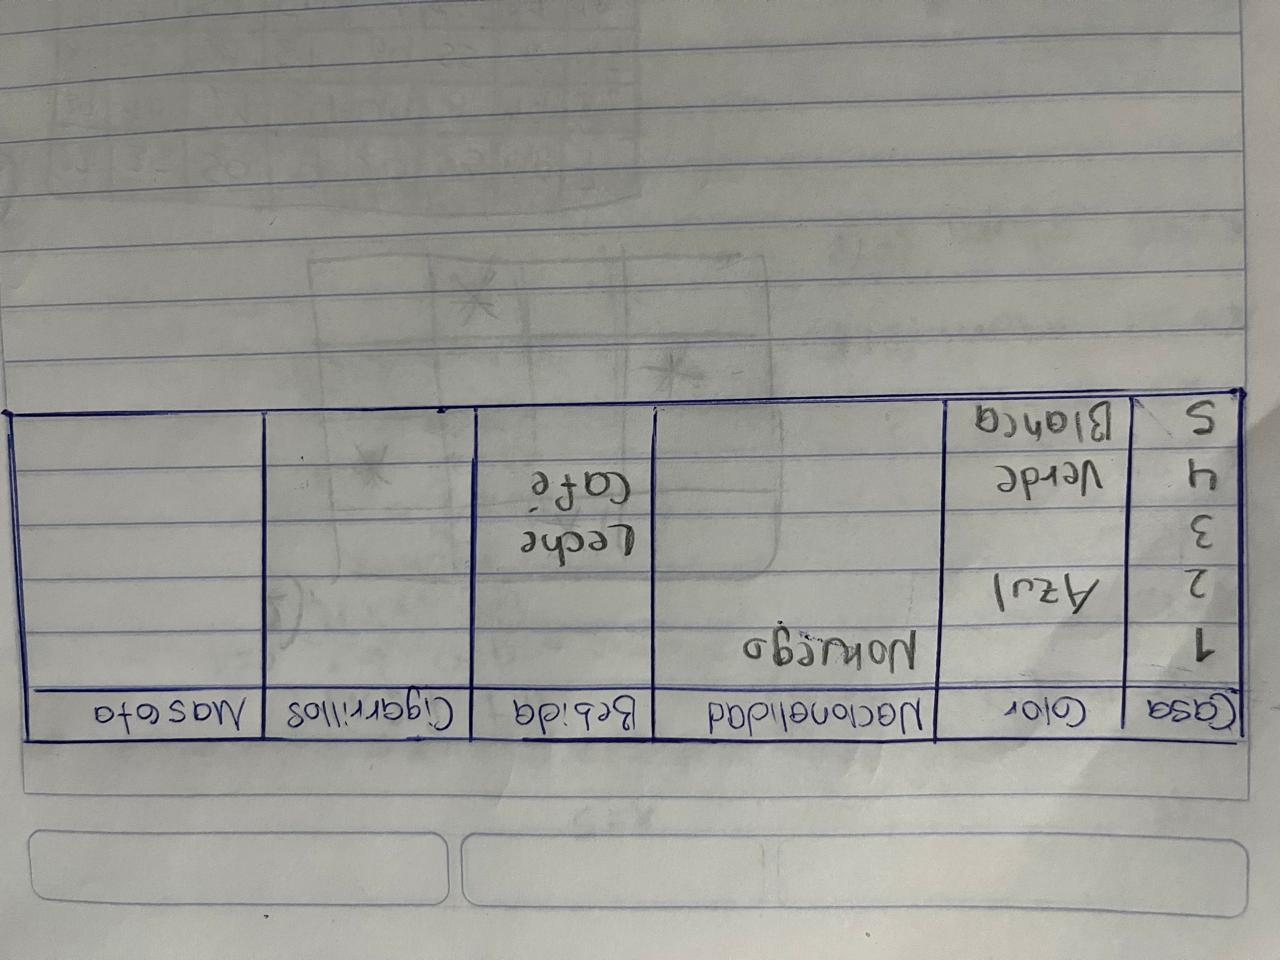 Casa Color Nacionalidad Bebida Cigarrillos Mascota
1 Noruego
2 Azul
3 Leche
4 Verde Café
5 Blanca